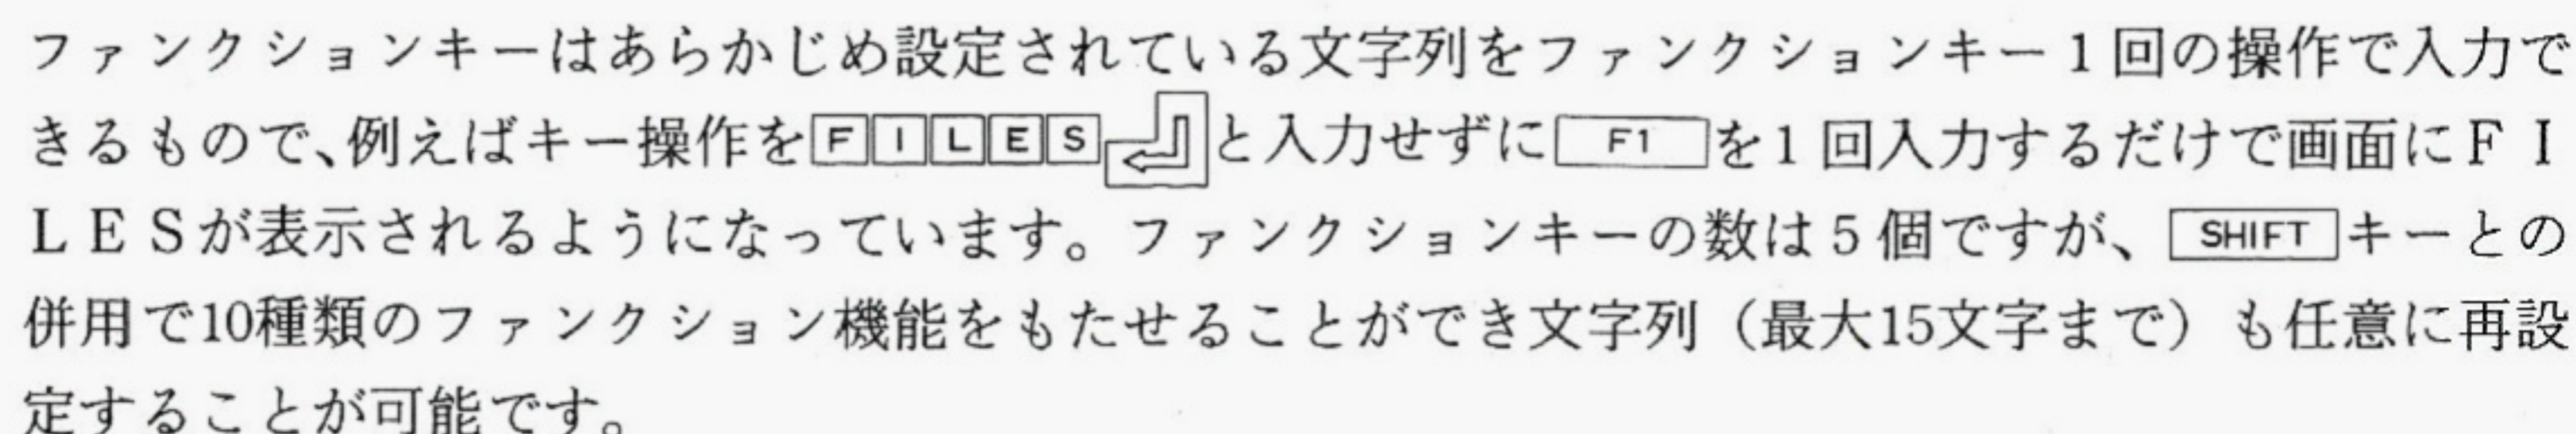 ファンクションキーはあらかじめ設定されている文字列をファンクションキー1回の操作で入力で
きるもので、例えばキー操作をFILES↵と入力せずにF1を1回入力するだけで画面にＦＩ
ＬＥＳが表示されるようになっています。ファンクションキーの数は5個ですが、SHIFTキーとの
併用で10種類のファンクション機能をもたせることができ文字列（最大15文字まで）も任意に再設
定することが可能です。